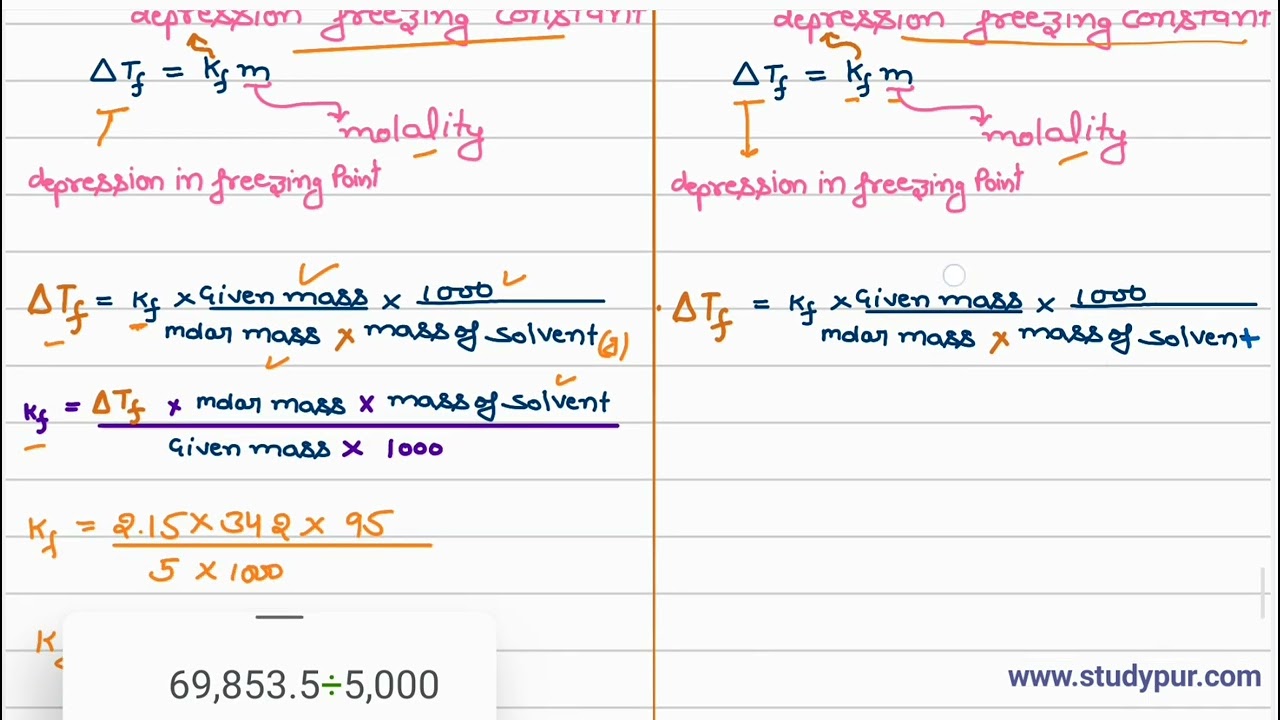 depression freezing constant
ΔTf = Kf m
molality
depression in freezing Point
ΔTf = Kf × Given mass × 1000
molar mass × mass of solvent (g)
Kf = ΔTf × molar mass × mass of solvent
Given mass × 1000
Kf = 2.15 × 342 × 95
5 × 1000
K
69,853.5÷5,000
depression freezing constant
ΔTf = Kf m
molality
depression in freezing Point
ΔTf = Kf × Given mass × 1000
molar mass × mass of solvent
www.studypur.com